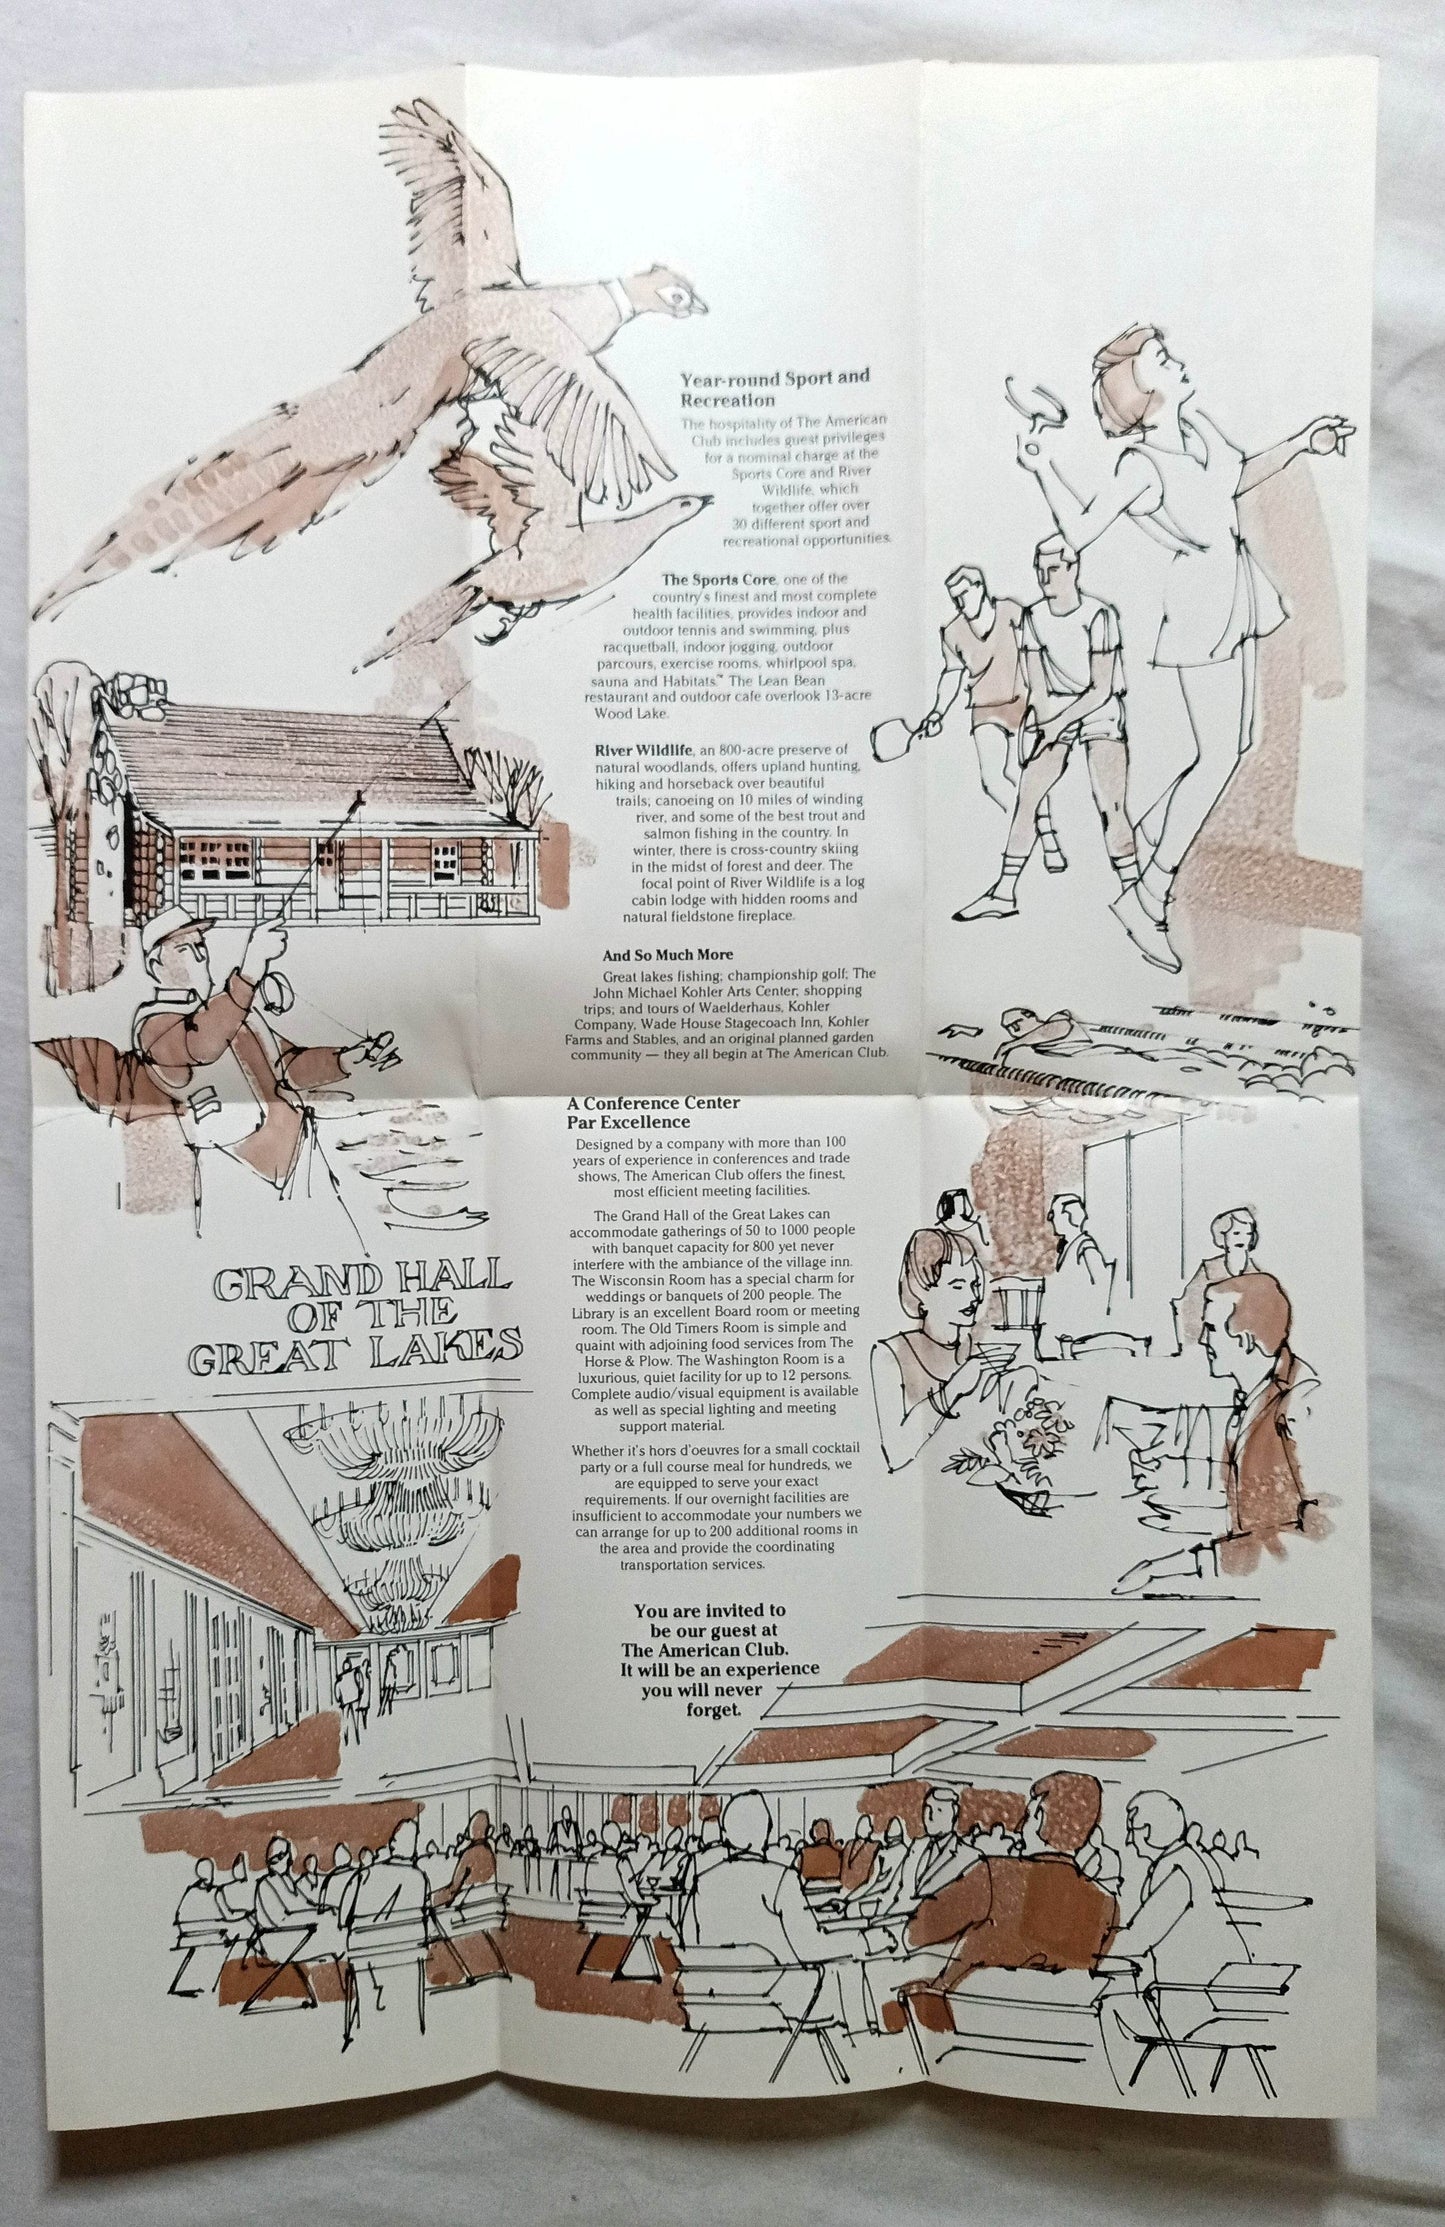 Year-round Sport and
Recreation
The hospitality of The American
Club includes guest privileges
for a nominal charge at the
Sports Core and River
Wildlife, which
together offer over
30 different sport and
recreational opportunities.
The Sports Core, one of the
country's finest and most complete
health facilities, provides indoor and
outdoor tennis and swimming, plus
racquetball, indoor jogging, outdoor
parcours, exercise rooms, whirlpool spa,
sauna and Habitats.™ The Lean Bean
restaurant and outdoor cafe overlook 13-acre
Wood Lake.
River Wildlife, an 800-acre preserve of
natural woodlands, offers upland hunting,
hiking and horseback over beautiful
trails; canoeing on 10 miles of winding
river, and some of the best trout and
salmon fishing in the country. In
winter, there is cross-country skiing
in the midst of forest and deer. The
focal point of River Wildlife is a log
cabin lodge with hidden rooms and
natural fieldstone fireplace.
And So Much More
Great lakes fishing; championship golf; The
John Michael Kohler Arts Center; shopping
trips; and tours of Waelderhaus, Kohler
Company, Wade House Stagecoach Inn, Kohler
Farms and Stables, and an original planned garden
community — they all begin at The American Club.
A Conference Center
Par Excellence
Designed by a company with more than 100
years of experience in conferences and trade
shows, The American Club offers the finest,
most efficient meeting facilities.
The Grand Hall of the Great Lakes can
accommodate gatherings of 50 to 1000 people
with banquet capacity for 800 yet never
interfere with the ambiance of the village inn.
The Wisconsin Room has a special charm for
weddings or banquets of 200 people. The
Library is an excellent Board room or meeting
room. The Old Timers Room is simple and
quaint with adjoining food services from The
Horse & Plow. The Washington Room is a
luxurious, quiet facility for up to 12 persons.
Complete audio/visual equipment is available
as well as special lighting and meeting
support material.
Whether it's hors d'oeuvres for a small cocktail
party or a full course meal for hundreds, we
are equipped to serve your exact
requirements. If our overnight facilities are
insufficient to accommodate your numbers we
can arrange for up to 200 additional rooms in
the area and provide the coordinating
transportation services.
You are invited to
be our guest at
The American Club.
It will be an experience
you will never
forget.
GRAND HALL
OF THE
GREAT LAKES